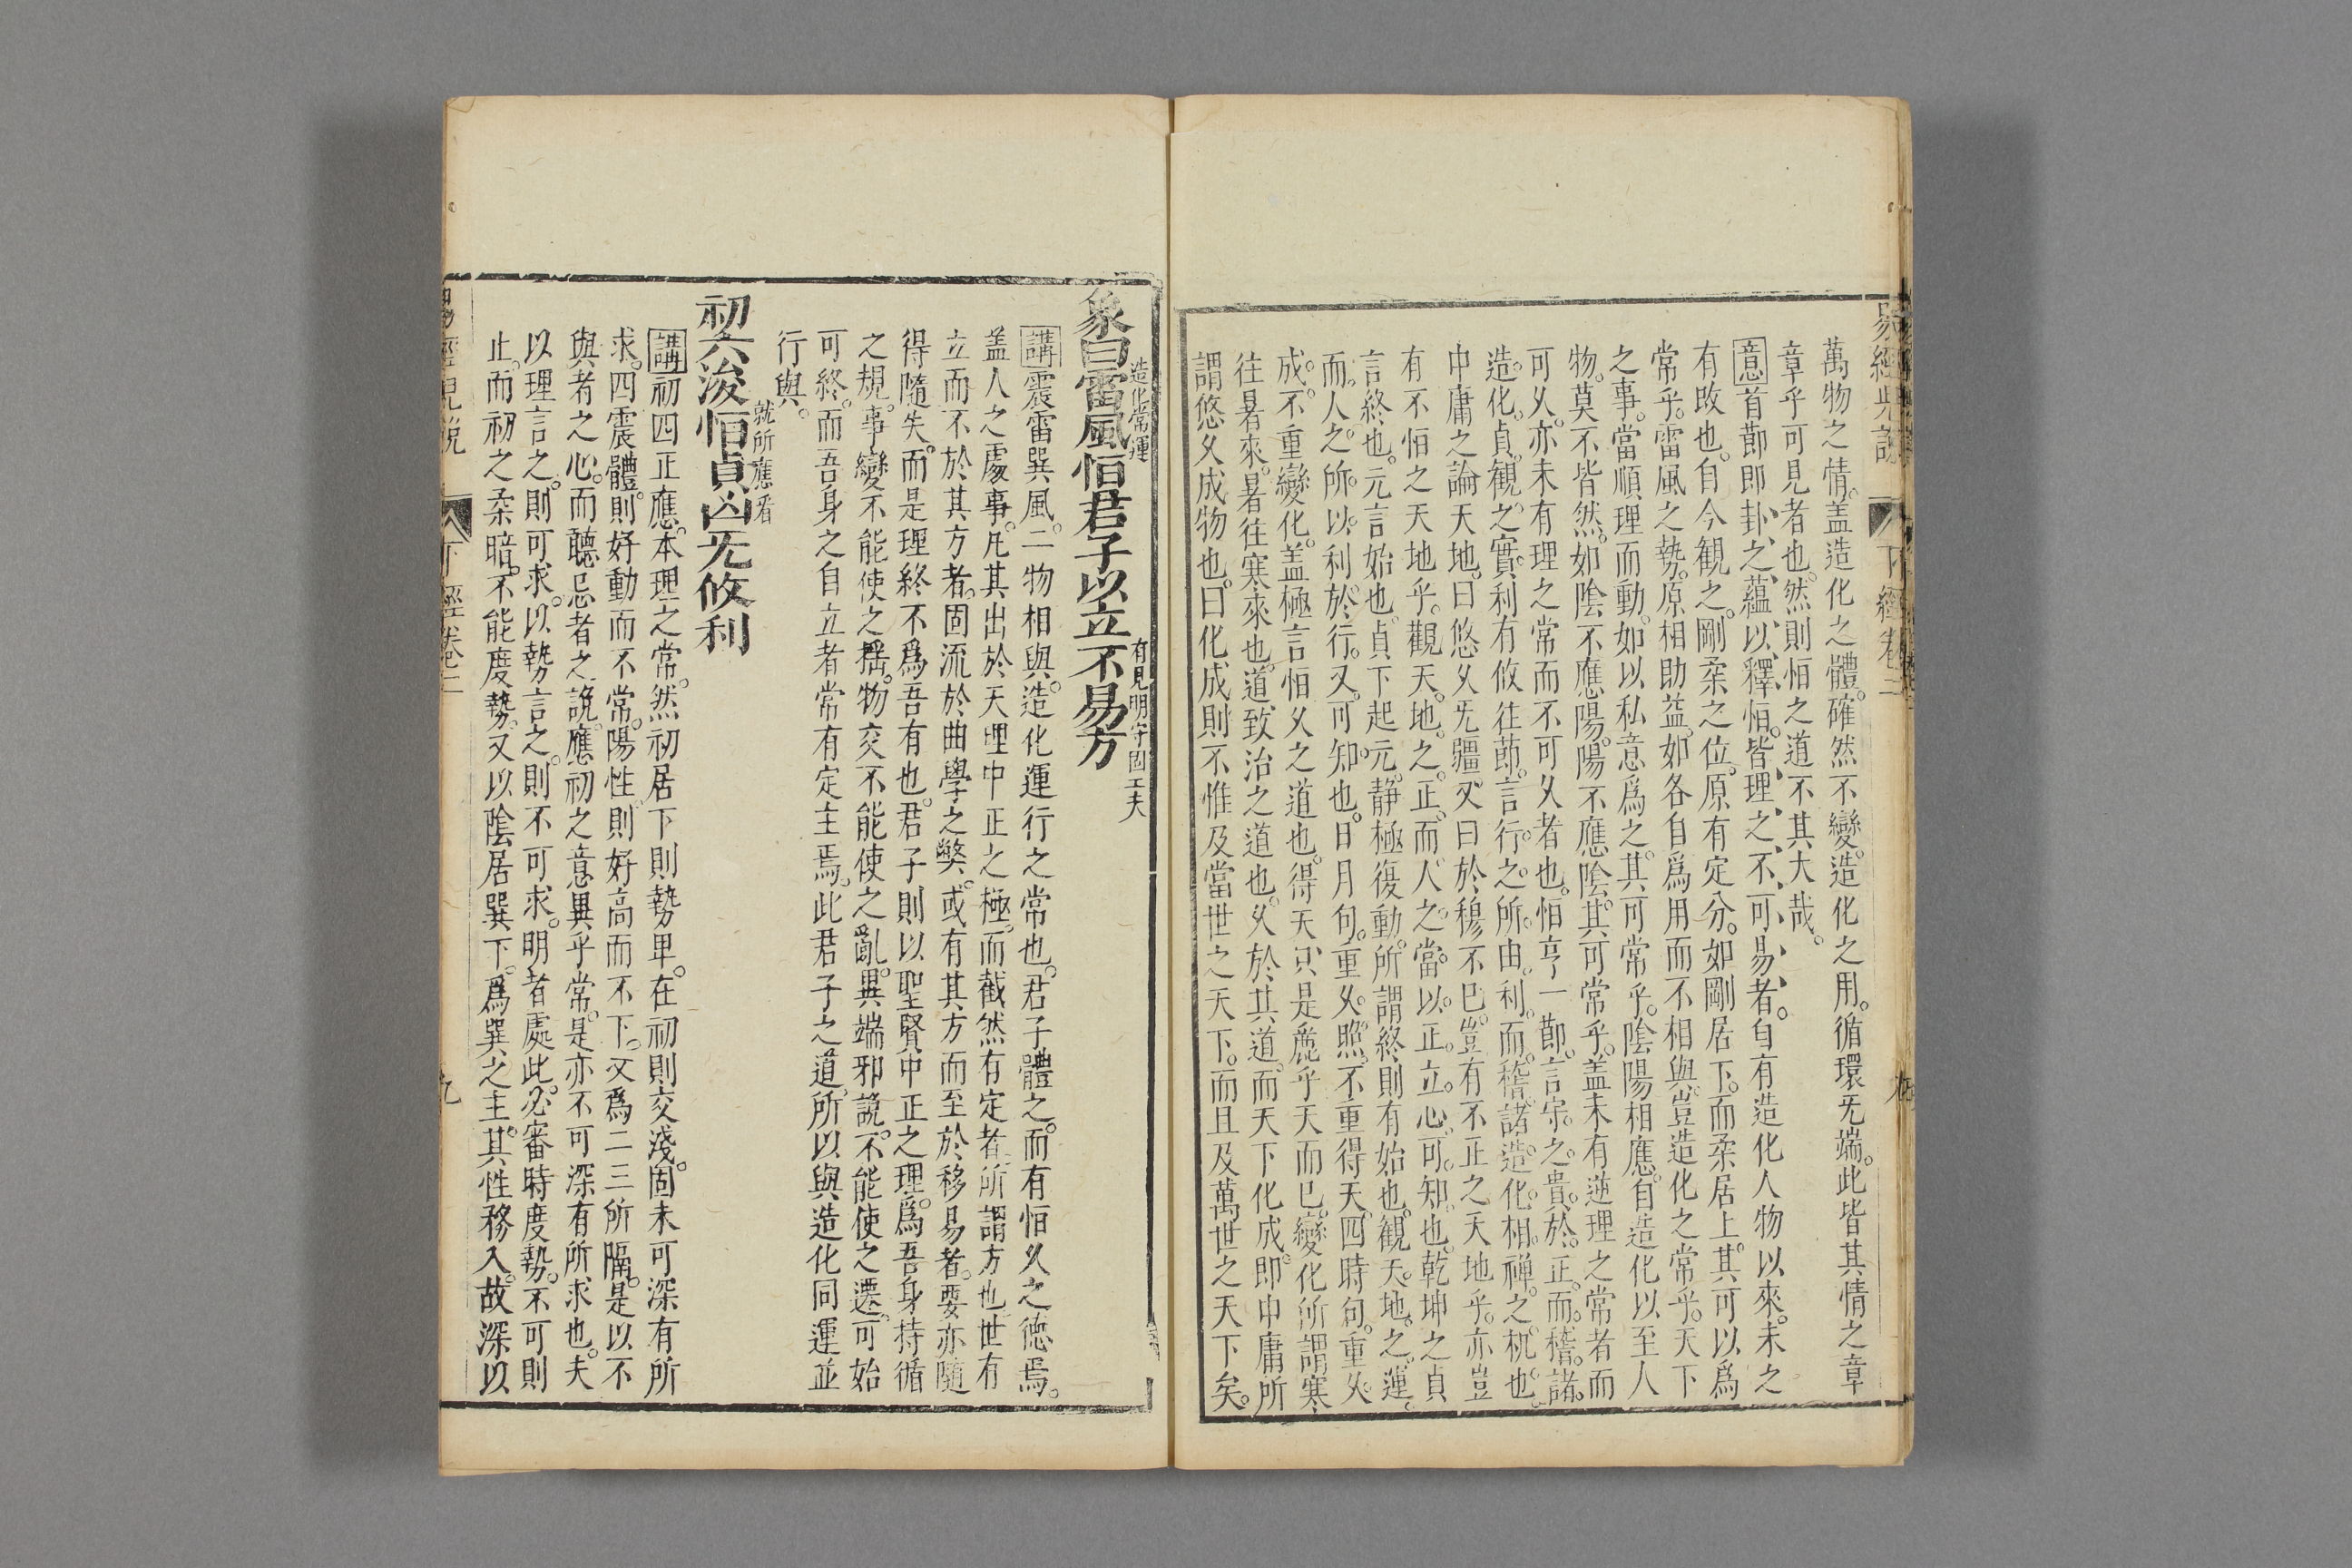 易經兒說 下經卷二
萬物之情。蓋造化之體。確然不變。造化之用。循環无端。此皆其情之章
章乎可見者也。然則恒之道不其大哉。
意首莭即卦之蘊以釋恒。皆理之不可易者。自有造化人物以來。未之
有改也。自今観之。剛柔之位。原有定分。如剛居下。而柔居上。其可以爲
常乎。雷風之勢。原相助益。如各自爲用而不相與。豈造化之常乎。天下
之事。當順理而動。如以私意爲之。其可常乎。陰陽相應。自造化以至人
物。莫不皆然。如陰不應陽。陽不應陰。其可常乎。蓋未有逆理之常者而
可乆。亦未有理之常而不可乆者也。恒亨一莭。言守之貴於正。而稽諸
造化。貞観之實。利有攸往莭。言行之所由利。而稽諸造化相禅之机也。
中庸之論天地。曰悠乆无疆。又曰於穆不已。豈有不正之天地乎。亦豈
有不恒之天地乎。觀天地之正。而人之當以正立心。可知也。乾坤之貞
言終也。元言始也。貞下起元。静極復動。所謂終則有始也。観天地之運
而人之所以利於行。又可知也。日月句。重乆照。不重得天。四時句。重乆
成。不重變化。蓋極言恒乆之道也。得天。只是麗乎天而已。變化所謂寒
往暑來。暑往寒來也。道致治之道也。乆於其道。而天下化成。即中庸所
謂悠乆成物也。曰化成則不惟及當世之天下。而且及萬世之天下矣。
造化常運
有見明守固工夫
象曰雷風恒君子以立不易方
講震雷巽風。二物相與。造化運行之常也。君子體之。而有恒乆之德焉。
盖人之處事。凡其出於天理中正之極。而截然有定者。所謂方也。世有
立而不於其方者。固流於曲學之獘。或有其方而至於移易者。要亦隨
得隨失。而是理終不爲吾有也。君子則以聖賢中正之理。爲吾身持循
之規。事變不能使之揺。物交不能使之亂。異端邪說。不能使之遷。可始
可終。而吾身之自立者常有定主焉。此君子之道。所以與造化同運並
行與。
就所應看
初六浚恒貞凶无攸利
講初四正應。本理之常。然初居下則勢卑。在初則交淺。固未可深有所
求。四震體。則好動而不常。陽性則好高而不下。又爲二三所隔。是以不
與者之心。而聽忌者之說。應初之意異乎常。是亦不可深有所求也。夫
以理言之。則可求。以勢言之。則不可求。明者處此。必審時度勢。不可則
止。而初之柔暗。不能度勢。又以陰居巽下。爲巽之主。其性務入。故深以
易經兒說 下經卷二 九